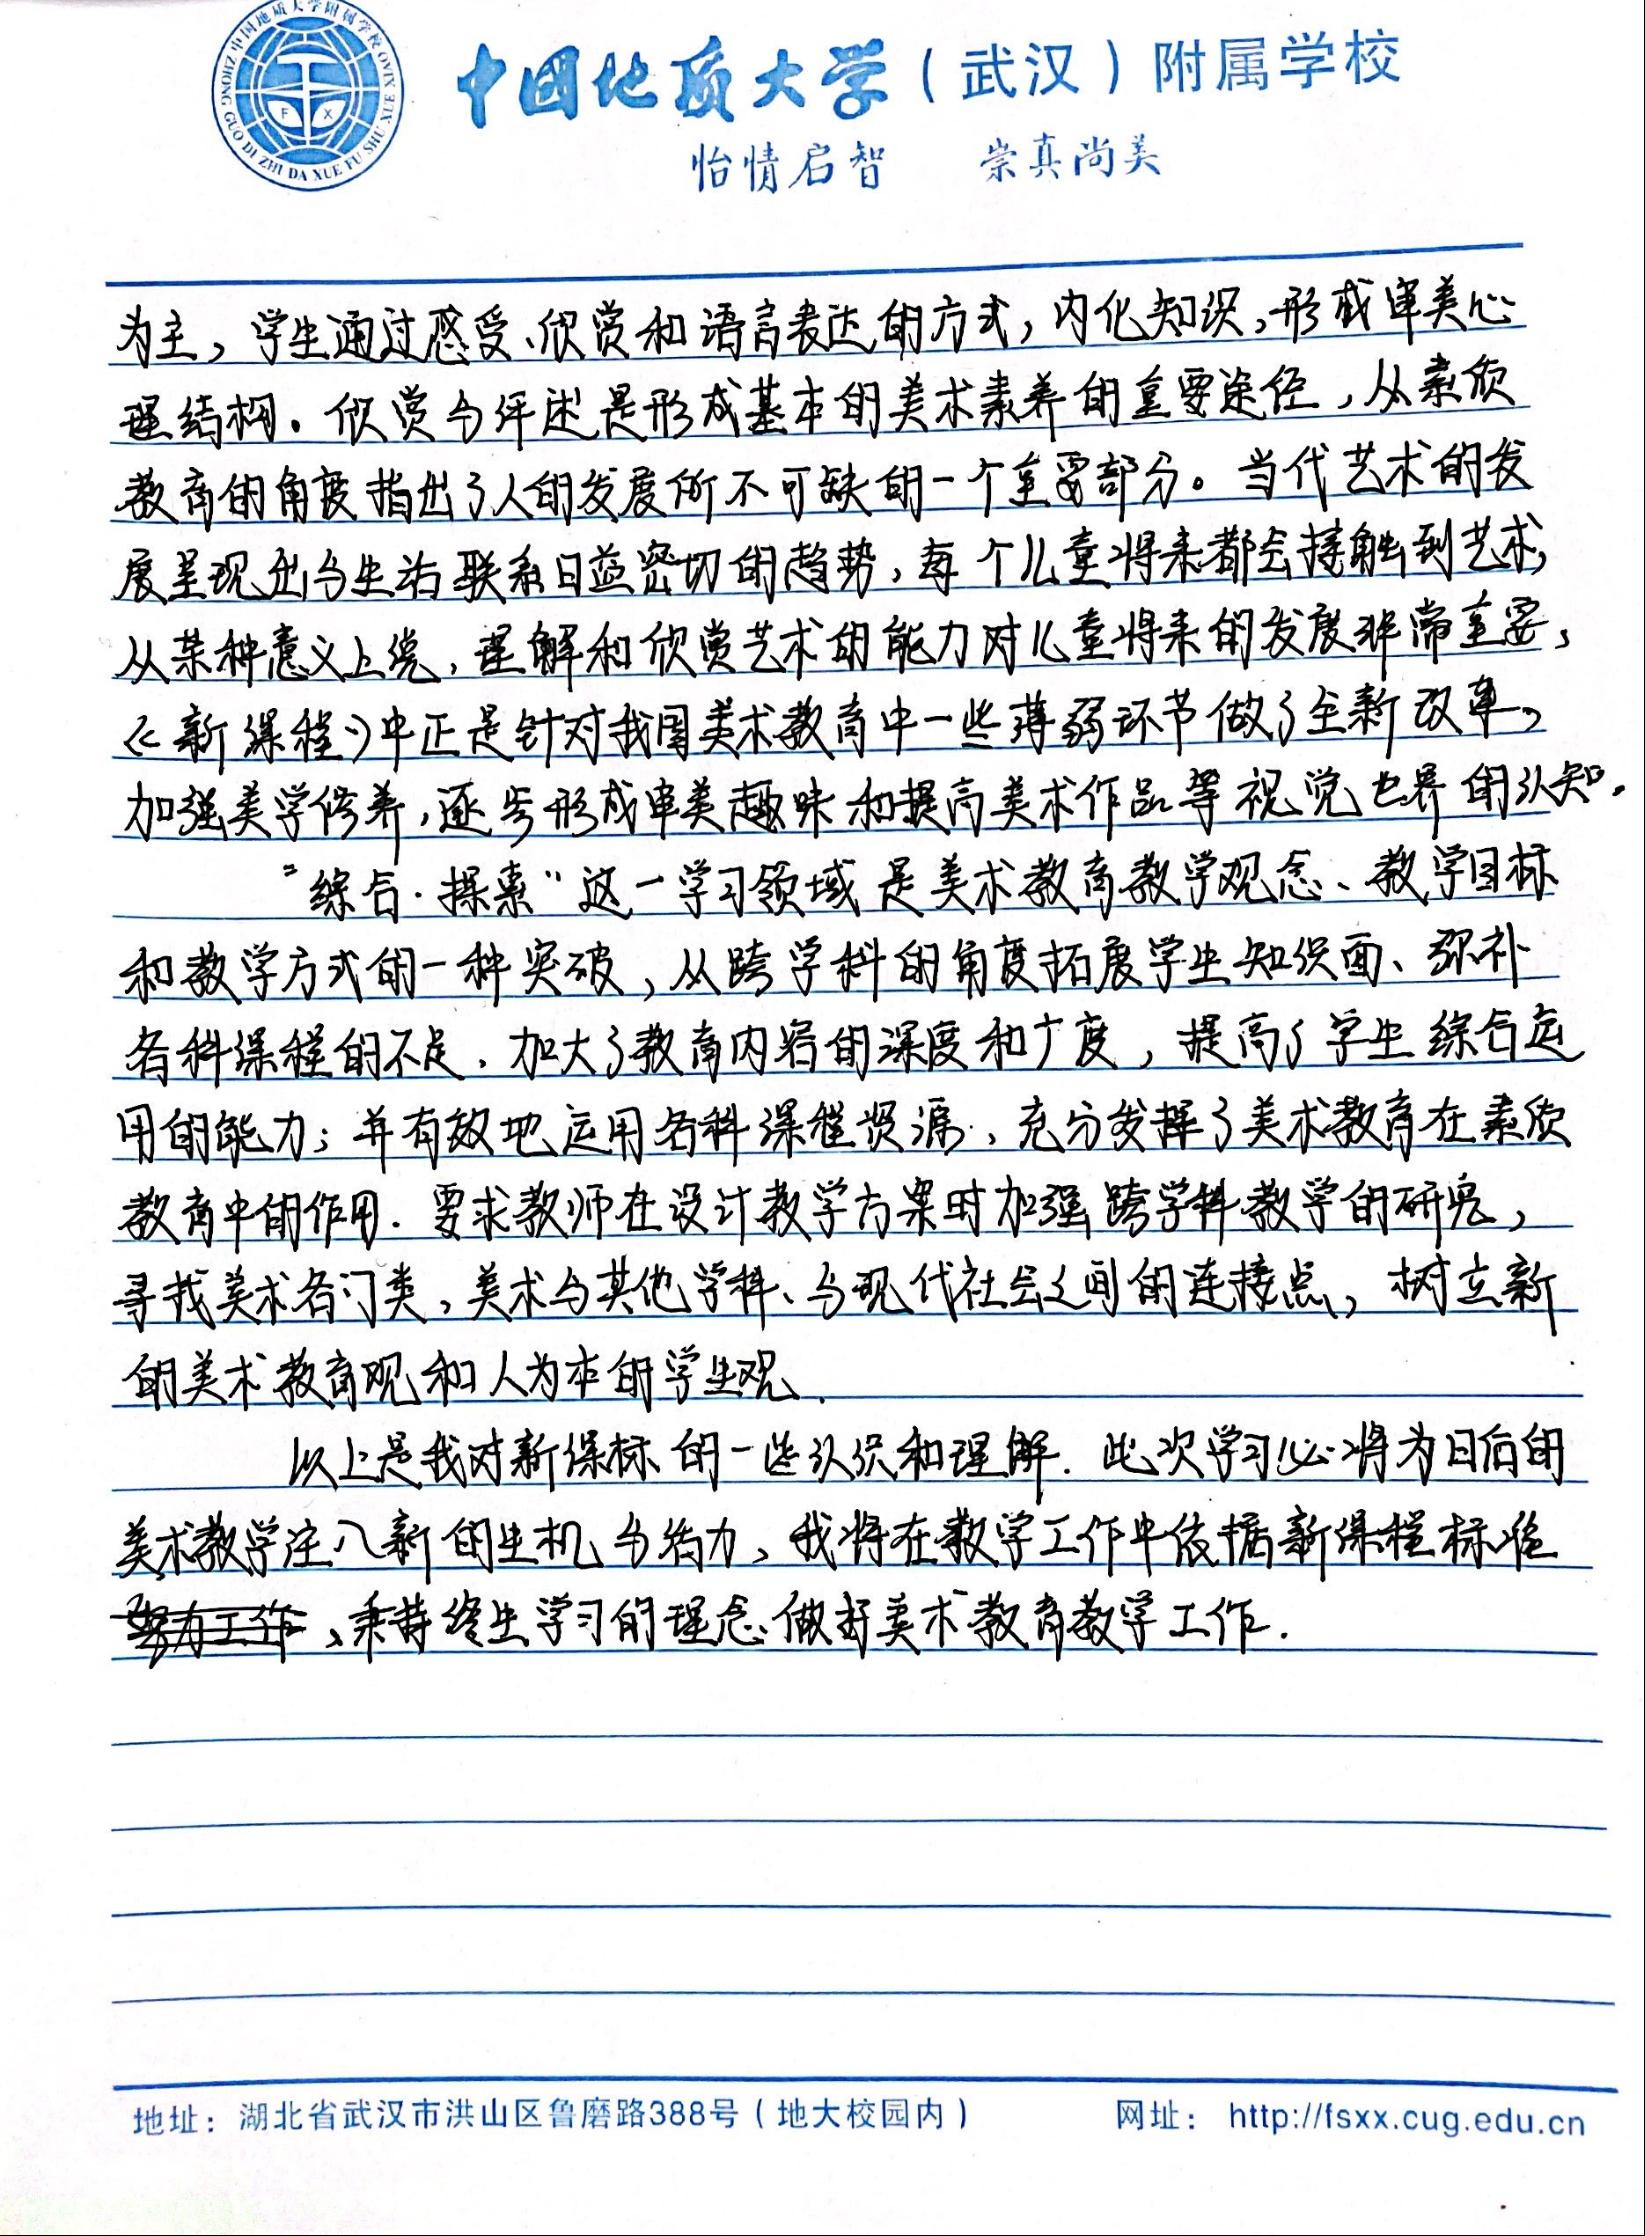 中国地质大学附属学校
ZHONG GUO DI ZHI DA XUE FU SHU XUE XIAO
F X
中国地质大学（武汉）附属学校
怡情启智 崇真尚美
为主，学生通过感受、欣赏和语言表达的方式，内化知识，形成审美心
理结构。欣赏与评述是形成基本的美术素养的重要途径，从素质
教育的角度指出了人的发展所不可缺的一个重要部分。当代艺术的发
展呈现出与生活联系日益密切的趋势，每个儿童将来都会接触到艺术，
从某种意义上说，理解和欣赏艺术的能力对儿童将来的发展非常重要，
《新课程》中正是针对我国美术教育中一些薄弱环节做了全新改革，
加强美学修养，逐步形成审美趣味和提高美术作品等视觉世界的认知。
“综合·探索”这一学习领域是美术教育教学观念、教学目标
和教学方式的一种突破，从跨学科的角度拓展学生知识面、弥补
各科课程的不足，加大了教育内容的深度和广度，提高了学生综合运
用的能力；并有效地运用各科课程资源，充分发挥了美术教育在素质
教育中的作用。要求教师在设计教学方案时加强跨学科教学的研究，
寻找美术各门类，美术与其他学科、与现代社会之间的连接点，树立新
的美术教育观和人为本的学生观。
以上是我对新课标的一些认识和理解。此次学习必将为日后的
美术教学注入新的生机与活力，我将在教学工作中依据新课程标准
努力工作，秉持终生学习的理念做好美术教育教学工作.
地址：湖北省武汉市洪山区鲁磨路388号（地大校园内） 网址：http://fsxx.cug.edu.cn